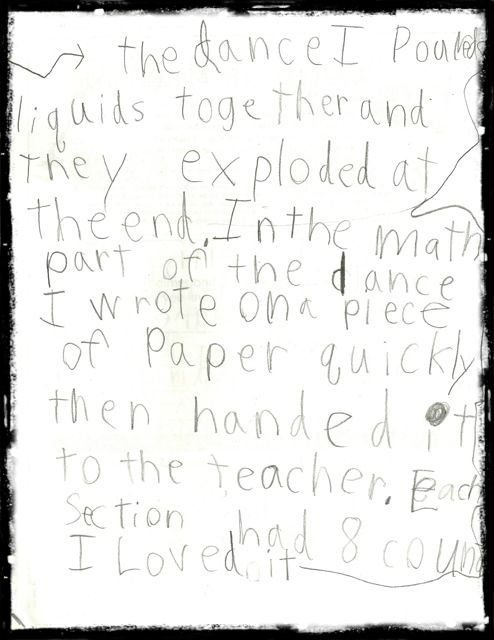 the dance I Poured
liquids together and
they exploded at
the end. In the math
part of the dance
I wrote on a piece
of Paper quickly
then handed it
to the teacher. Each
Section had 8 coun
I Loved it